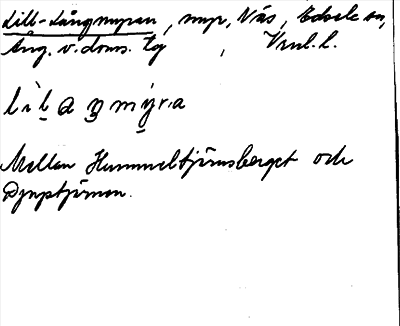 Lill-Långmyran, myr, Näs, Edsele sn,
Ång. v. doms. lg , Vnl. l.
lìlaŋmýra
Mellan Hummeltjärnsberget och
Djuptjärnen.